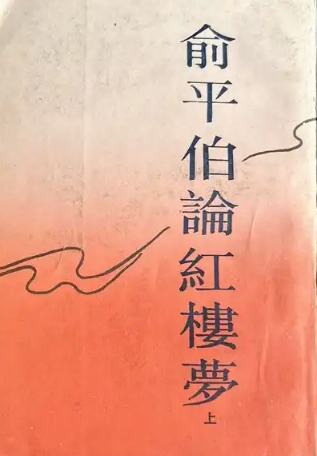 俞平伯論紅樓夢
上